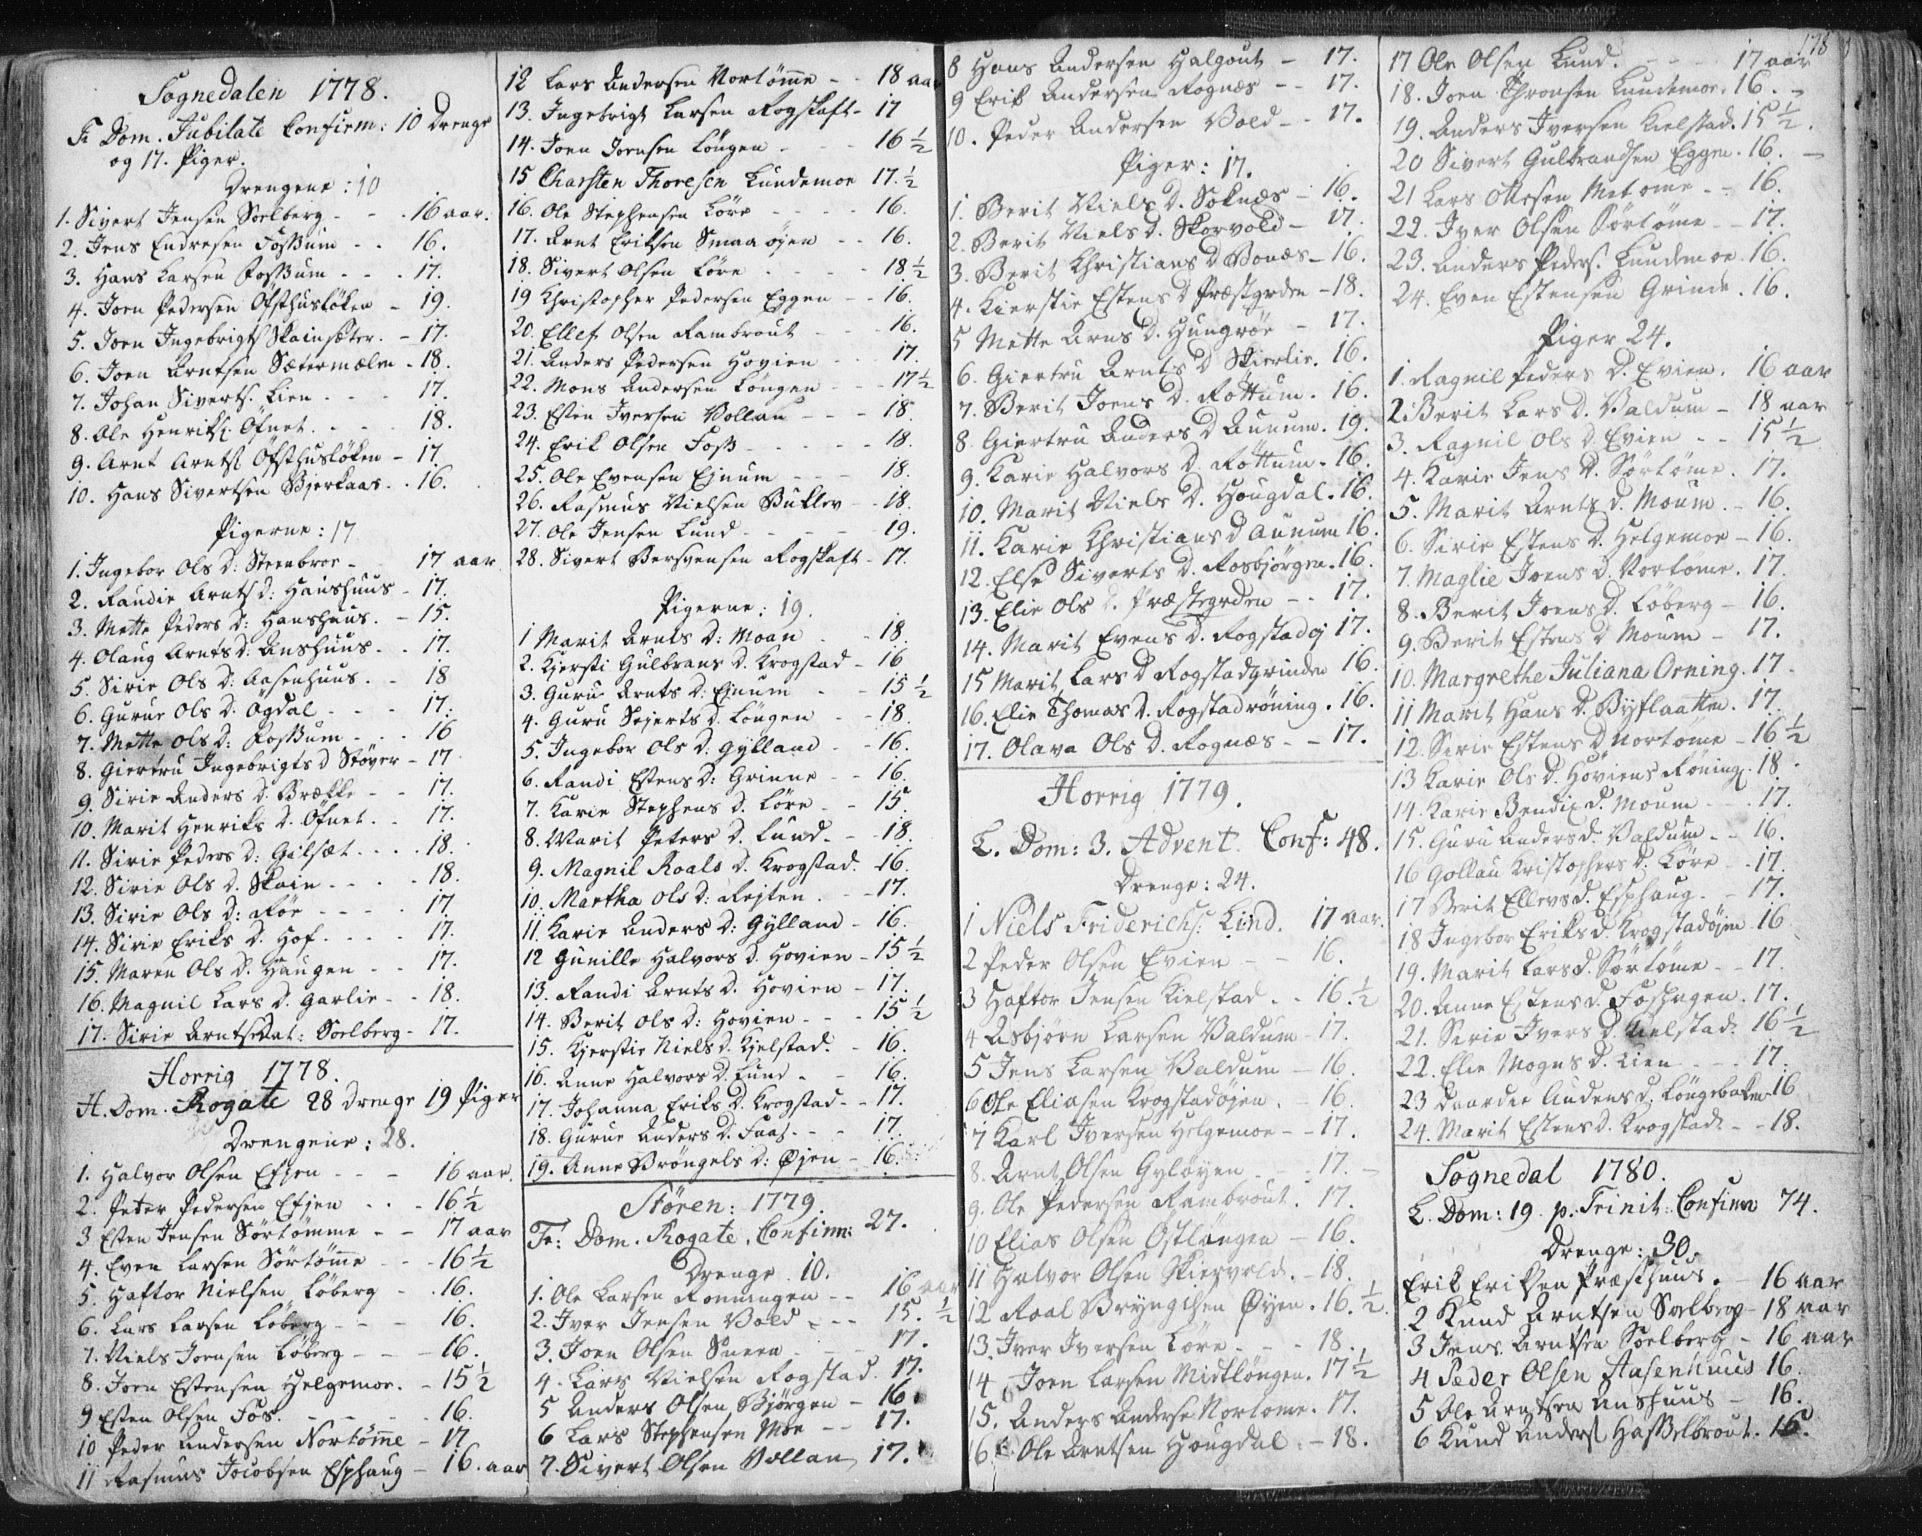 Sognedalen 1778.
Fr Dom. Jubilate Confirm: 10 Drenge
og 17. Piger.
Drengene: 10
1. Sivert Jensen Soelberg - - - 16 aar.
2. Jens Endresen Fossum - - 16.
3. Hans Larsen Fossum - - - 17.
4. Joen Pedersen Ofsthusløken - 19.
5. Joen Ingebrigts Skainsæter. - 17.
6. Joen Arntsen Sætermælen - 18.
7. Johan Siverts. Lien - - - 17.
8. Ole Henriks. Ofnet. - - - 18.
9. Arnt Arnts Ofsthusløken - 17
10. Hans Sivertsen Bjerkaas. - 16.
Pigerne: 17
1. Ingebor Ols d: Steenbroe - 17 aar
2. Randie Arnts d: Haushuus - 17.
3. Mette Peders d: Hanshuus. - 15.
4. Olaug Arnts d: Anshuus. - 17.
5. Sirie Ols d: Aasenhuus. - 18
6. Gurue Ols d. Ogdal - - - 17.
7. Mette Ols d: Fossum - - - 16
8. Giertru Ingebrigts d Støver - 17
9. Sirie Anders d. Brække - - 17.
10. Marit Henriks d. Ofnet. - 17.
11. Sirie Peders d: Gilsæt. - - - 18.
12. Sirie Ols d. Skain - - - 18.
13. Sirie Ols d: Røe - - - 17
14. Sirie Eriks d. Hof. - - - 17.
15. Maren Ols d. Haugen - - 17.
16. Magnil Lars d. Garlie - - 18.
17. Sirie Arnts Dat: Soelberg - 17.
Horrig 1778.
H. Dom. Rogate 28 Drenge 19 Piger
Drengene: 28.
1. Halvor Olsen Efjen - - - 16 aar.
2. Peter Pedersen Efjen - - - 16 ½
3 Esten Jensen Sørtømme - - 17 aar
4. Even Larsen Sørtømme - - 16 ½
5. Haftor Nielsen Løberg - - 16.
6. Lars Larsen Løberg - - - 16.
7. Niels Joensen Løberg - - - 16.
8. Joen Estensen Helgemoe. - 15 ½
9 Esten Olsen Fos. - - - 16.
10 Peder Andersen Nortømme - 17
11 Rasmus Jacobsen Esphaug - 16. aar
12 Lars Andersen Nortømme - - 18 aar
13. Ingebrigt Larsen Rogstaft - 17
14. Joen Joensen Løngen - - - 16 ½
15 Charsten Thoresen Lundemoe 17. ½
16. Ole Stephensen Løre - - - 16.
17. Arnt Eriksen Smaaøyen - - 16.
18. Sivert Olsen Løre - - - 18 ½
19 Christopher Pedersen Eggen - - 16.
20. Ellef Olsen Rambrout - - - 16.
21. Anders Pedersen Hovien - - 17.
22. Mons Andersen Løngen - - - 17 ½
23. Esten Iversen Vollan - - - 18.
24. Erik Olsen Foss - - - 18.
25. Ole Evensen Ejnum - - - 18.
26. Rasmus Nielsen Buklev - - 18.
27. Ole Jensen Lund - - - 19.
28. Sivert Bersvensen Rogstaft - 17.
Pigerne: 19.
1 Marit Arnts d: Moan - - 18.
2. Kjersti Gulbrans d. Krogstad - 16
3. Guru Arnts d: Ejnum - - 15 ½
4. Guru Sejerts d. Løngen - - 18.
5. Ingebor Ols d: Gylland - - 16.
6. Randi Estens d: Grinne - - 16.
7. Karie Stephens d. Løre - - 15.
8. Marit Peters d. Lund. - - 18.
9. Magnil Roals d. Krogstad. - 16.
10. Martha Ols d: Rejten. - - 17.
11. Karie Anders d: Gylland - 16.
12 Gunille Halvors d. Hovien - 15 ½
13. Randi Arnts d. Hovien - 17.
14. Berit Ols d: Hovien - - - 15 ½
15. Kjerstie Niels d. Kjelstad. - 16.
16. Anne Halvors d. Lund - - 16.
17. Johanna Eriks d. Krogstad - - 17.
18. Gurue Anders d. Faas. - - 17.
19. Anne Brøngels d: Øjen - 16.
Støren: 1779.
Fr: Dom. Rogate. Confirm: 27.
Drenge 10.
1. Ole Larsen Ronningen - - 16 aar
2. Iver Jensen Vold - - - 15. ½
3. Joen Olsen Sneen - - - 17.
4. Lars Nielsen Rogstad. 17.
5 Anders Olsen Bjørgen - 16.
6 Lars Stephensen Moe - - 17.
7. Sivert Olsen Vollan 17.
8 Hans Andersen Halgout - 17.
9 Erik Andersen Rognæs - - 17.
10. Peder Andersen Vold - - 17.
Piger: 17.
1. Berit Niels d. Soknæs - 16.
2. Berit Niels d. Skorvold - 17.
3. Berit Christians d Bonæs - 16.
4. Kierstie Estens d Præstgrden - 18.
5 Mette Arns d. Hungrøe - 17.
6. Giertru Arnts d Skierlie. 16.
7. Berit Joens d. Rottum. 16.
8. Giertru Anders d Aunum. 19.
9. Karie Halvors d. Røttum. 16.
10. Marit Niels d. Hougdal. 16.
11. Karie Christians d Aunum 16.
12. Else Siverts d. Rosbjørgen. 16.
13. Elie Ols d. Præstegrden - - 17.
14. Marit Evens d. Rogstadøj 17.
15 Marit Lars d Rogstadgrinden 16.
16. Elie Thomas d. Rogstadrøning. 16.
17. Olava Ols d. Rognæs - - 17.
Horrig 1779.
L. Dom: 3. Advent. Conf: 48.
Drenge: 24.
1 Niels Friderichs: Lind. 17 aar.
2 Peder Olsen Evien - - 16.
3 Haftor Jensen Kielstad. - 16. ½
4 Asbjørn Larsen Valdum - 17.
5 Jens Larsen Valdum - 16.
6 Ole Eliasen Krogstadøjen. - 16.
7 Karl Iversen Helgemoe - - 17.
8. Arnt Olsen Gyløyen - - 17.
9. Ole Pedersen Rambrout. 17.
10 Elias Olsen Ostlängen - 16.
11 Halvor Olsen Skiervold. - 18.
12 Roal Bryngelsen Øyen. 16. ½
13. Iver Iversen Løre - - - 18.
14 Joen Larsen Midtløngen. 17 ½
15. Anders Anderse Nortome. 17.
16. Ole Arntsen Hougdal - 18.
178
17 Ole Olsen Lund. - - - 17 aar
18. Joen Thronsen Lundemoe. 16.
19. Anders Iversen Kielstad. 15 ½.
20 Sivert Gulbrandsen Eggen. 16.
21 Lars Olesen Metome - - 16.
22. Iver Olsen Sörtöme - - 17.
23. Anders Peders. Lundemoe. 16.
24. Even Estensen Grinde. 16.
Piger 24.
1. Ragnil Peders d. Evien. 16 aar
2 Berit Lars d. Valdum - 18 aar
3. Ragnil Ols d. Evien - - 15 ½
4. Karie Jens d. Sörtöme. 17.
5. Marit Arnts d. Moum. - 16.
6. Sirie Estens d. Helgemoe - 16.
7. Maglie Joens d. Nortöme. 17
8. Berit Joens d. Løberg - 16.
9. Berit Estens d Moum - 17.
10. Margrethe Juliana Orning. 17.
11 Marit Hans d. Byflaatten. 17.
12. Serie Estens d Nortöme - 16 ½
13 Karie Ols d. Höviens Röning. 18.
14. Karie Bendix d. Moum - - 17.
15. Guru Anders d. Valdum - - 16.
16 Gollau Kristophers d. Løre - 17.
17 Berit Ellevs d. Esphaug. - 17.
18 Ingebor Eriks d. Krogstadøjen 16
19. Marit Lars d. Sørtöme - - 17.
20. Anne Estens d. Foshagen. 17.
21. Serie Ivers d. Kielstad: 16 ½
22. Elie Mogns d. Lien - - - 17.
23 Daardee Audens d. Løngebaken 16
24. Marit Estens d. Krogstad - - 18.
Sognedal 1780.
L. Dom: 19. p. Trinit: Confirm 74.
Drenge: 30.
Erik Eriksen Præsthuus. - 16 aar
2 Knud Arntsen Soelberg - 18 aar
3 Jens Arntsen Soelberg - 16 aar
4 Peder Olsen Aasenhuus 16.
5 Ole Arntsen Anshuus - 16.
6 Knud Anders Hasselbrout. 16.